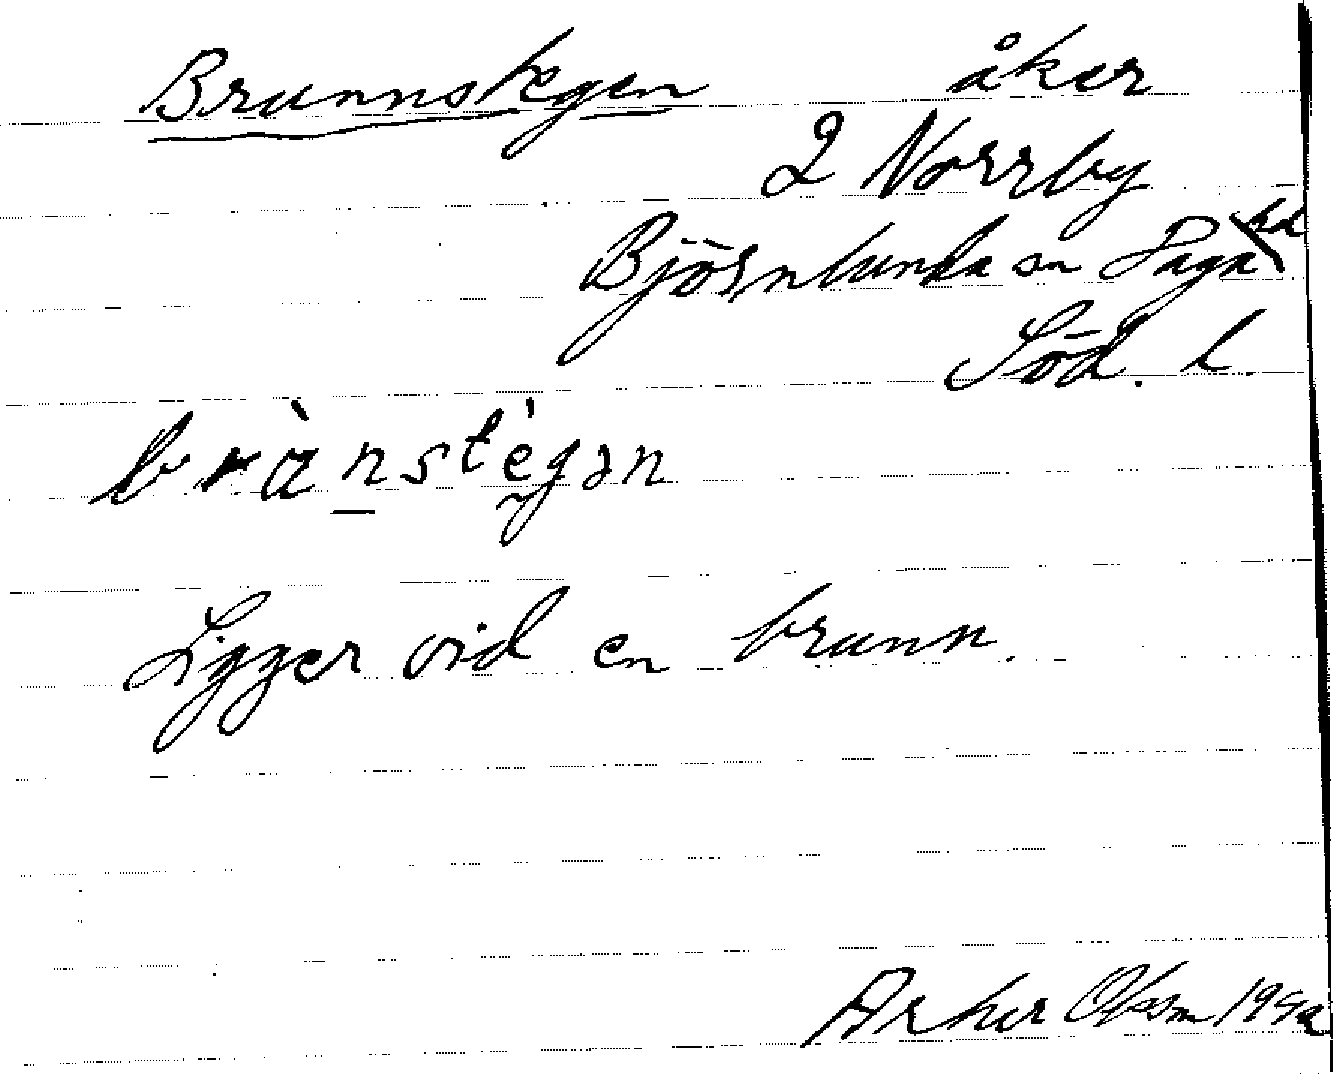 Brunnstegen åker
2 Norrby
Björnlunda sn Daga hd
Söd. l.
brànste̖gən
Ligger vid en brunn.